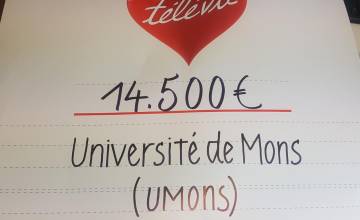 télévie
14.500€
Université de Mons
(UMONS)